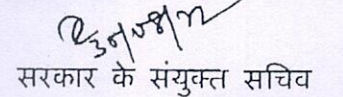 सरकार के संयुक्त सचिव